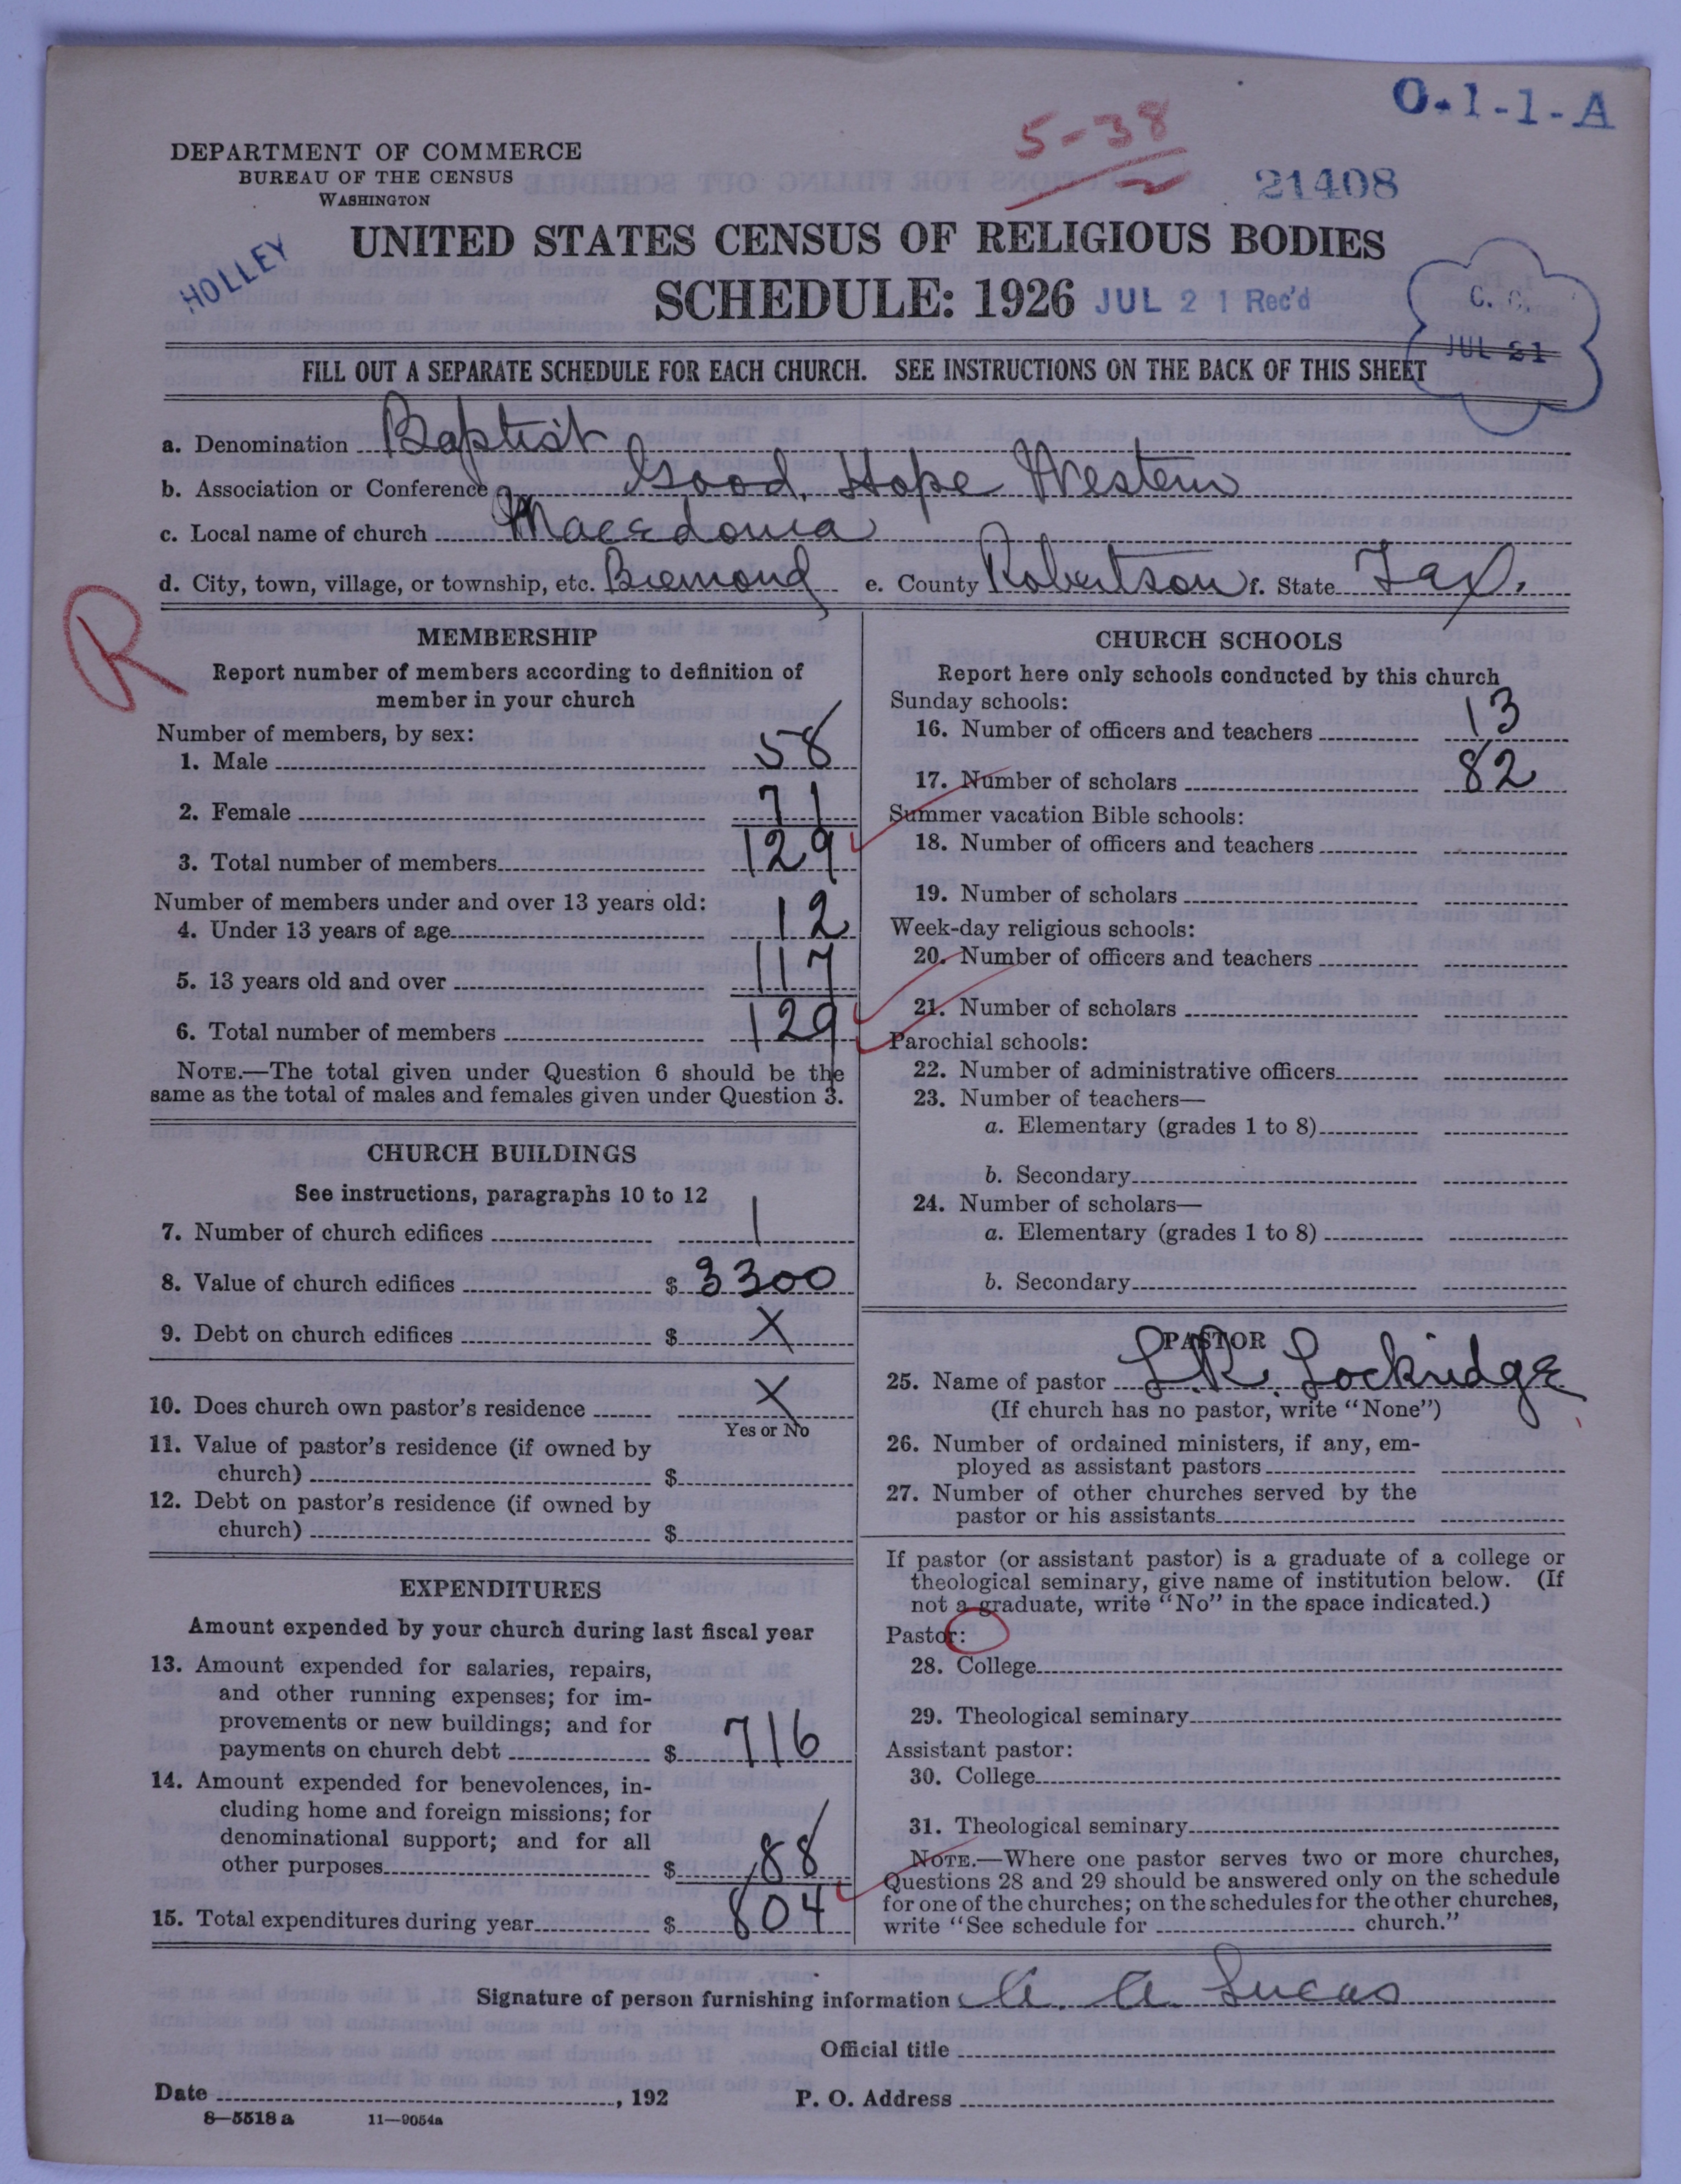 O-1-1-A
5-38
21408
DEPARTMENT OF COMMERCE
BUREAU OF THE CENSUS
WASHINGTON
HOLLEY
UNITED STATES CENSUS OF RELIGIOUS BODIES
SCHEDULE: 1926 JUL 21 Rec'd
C. C.
JUL 21
FILL OUT A SEPARATE SCHEDULE FOR EACH CHURCH. SEE INSTRUCTIONS ON THE BACK OF THIS SHEET
a. Denomination Baptist
b. Association or Conference Good Hope Western
c. Local name of church Macedonia
d. City, town, village, or township, etc. Bremond e. County Robertson f. State Tax.
R
MEMBERSHIP
Report number of members according to definition of
member in your church
Number of members, by sex:
1. Male 58
2. Female 71
3. Total number of members 129
Number of members under and over 13 years old:
4. Under 13 years of age 12
5. 13 years old and over 117
6. Total number of members 129
NOTE.—The total given under Question 6 should be the
same as the total of males and females given under Question 3.
CHURCH BUILDINGS
See instructions, paragraphs 10 to 12
7. Number of church edifices 1
8. Value of church edifices $ 3300
9. Debt on church edifices $ X
10. Does church own pastor's residence X
Yes or No
11. Value of pastor's residence (if owned by
church) $
12. Debt on pastor's residence (if owned by
church) $
EXPENDITURES
Amount expended by your church during last fiscal year
13. Amount expended for salaries, repairs,
and other running expenses; for im-
provements or new buildings; and for
payments on church debt $ 716
14. Amount expended for benevolences, in-
cluding home and foreign missions; for
denominational support; and for all
other purposes $ 88
15. Total expenditures during year $ 804
CHURCH SCHOOLS
Report here only schools conducted by this church
Sunday schools:
16. Number of officers and teachers 13
17. Number of scholars 82
Summer vacation Bible schools:
18. Number of officers and teachers
19. Number of scholars
Week-day religious schools:
20. Number of officers and teachers
21. Number of scholars
Parochial schools:
22. Number of administrative officers
23. Number of teachers—
a. Elementary (grades 1 to 8)
b. Secondary
24. Number of scholars—
a. Elementary (grades 1 to 8)
b. Secondary
PASTOR
25. Name of pastor L.R. Lockridge
(If church has no pastor, write "None")
26. Number of ordained ministers, if any, em-
ployed as assistant pastors
27. Number of other churches served by the
pastor or his assistants
If pastor (or assistant pastor) is a graduate of a college or
theological seminary, give name of institution below. (If
not a graduate, write "No" in the space indicated.)
Pastor:
28. College
29. Theological seminary
Assistant pastor:
30. College
31. Theological seminary
NOTE.—Where one pastor serves two or more churches,
Questions 28 and 29 should be answered only on the schedule
for one of the churches; on the schedules for the other churches,
write "See schedule for church."
Signature of person furnishing information A. A. Lucas
Official title
Date , 192 P. O. Address
8—5518 a 11—9054a